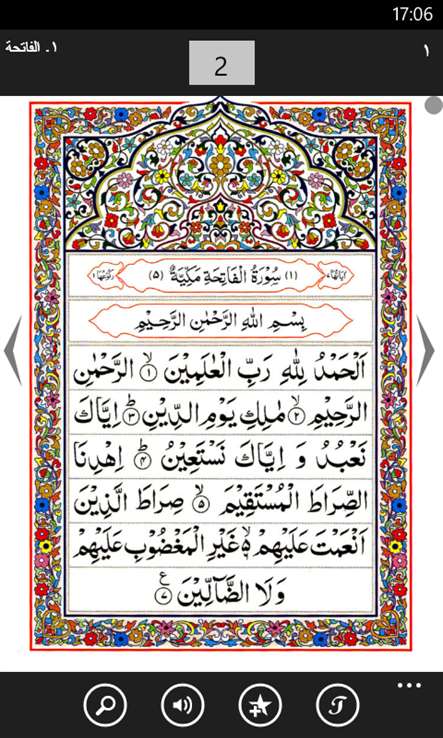 17:06
١. الفاتحة
2
١
(١) سُوْرَةُ الْفَاتِحَةِ مَكِّيَّةٌ (٥)
بِسْمِ اللّٰهِ الرَّحْمٰنِ الرَّحِيْمِ
اَلْحَمْدُ لِلّٰهِ رَبِّ الْعٰلَمِيْنَ ۙ﴿١﴾ الرَّحْمٰنِ
الرَّحِيْمِ ۙ﴿٢﴾ مٰلِكِ يَوْمِ الدِّيْنِ ؕ﴿٣﴾ اِيَّاكَ
نَعْبُدُ وَ اِيَّاكَ نَسْتَعِيْنُ ؕ﴿٤﴾ اِهْدِنَا
الصِّرَاطَ الْمُسْتَقِيْمَ ۙ﴿٥﴾ صِرَاطَ الَّذِيْنَ
اَنْعَمْتَ عَلَيْهِمْ ۙ۬ۙ غَيْرِ الْمَغْضُوْبِ عَلَيْهِمْ
وَلَا الضَّآلِّيْنَ ࣖ﴿٧﴾